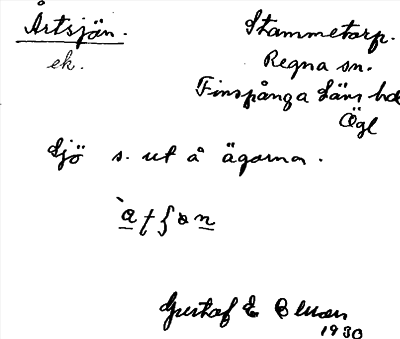 Årtsjön.
ek.
Stammetorp.
Regna sn.
Finspånga läns hd
Ögl
Sjö s. ut å ägorna.
Gustaf E
1930